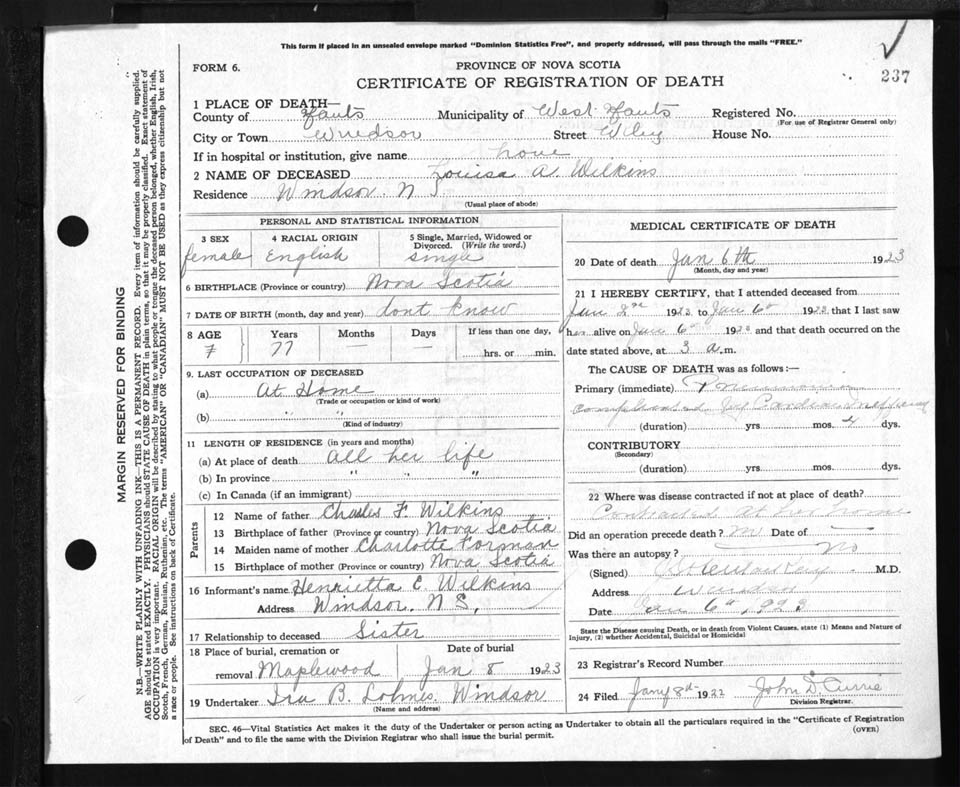 This form if placed in an unsealed envelope marked "Dominion Statistics Free", and properly addressed, will pass through the mails "FREE."
FORM 6.
PROVINCE OF NOVA SCOTIA
237
CERTIFICATE OF REGISTRATION OF DEATH
1 PLACE OF DEATH—
County of Hants Municipality of West Hants Registered No.
(For use of Registrar General only)
City or Town Windsor Street Wiley House No.
If in hospital or institution, give name
2 NAME OF DECEASED Louisa A. Wilkins
Residence Windsor. N S
(Usual place of abode)
PERSONAL AND STATISTICAL INFORMATION
3 SEX
female
4 RACIAL ORIGIN
English
5 Single, Married, Widowed or Divorced. (Write the word.)
single
6 BIRTHPLACE (Province or country) Nova Scotia
7 DATE OF BIRTH (month, day and year) dont know
8 AGE Years Months Days If less than one day,
77 — hrs. or min.
9. LAST OCCUPATION OF DECEASED
(a) At Home
(Trade or occupation or kind of work)
(b) " "
(Kind of industry)
11 LENGTH OF RESIDENCE (in years and months)
(a) At place of death all her life
(b) In province " " "
(c) In Canada (if an immigrant)
Parents
12 Name of father Charles F. Wilkins
13 Birthplace of father (Province or country) Nova Scotia
14 Maiden name of mother Charlotte Forman
15 Birthplace of mother (Province or country) Nova Scotia
16 Informant's name Henrietta C. Wilkins
Address Windsor. N S,
17 Relationship to deceased Sister
18 Place of burial, cremation or removal Maplewood
Date of burial
Jan 8 1923
19 Undertaker Ira B. Lohnes. Windsor
(Name and address)
MEDICAL CERTIFICATE OF DEATH
20 Date of death Jan 6th 1923
(Month, day and year)
21 I HEREBY CERTIFY, that I attended deceased from
Jan 2nd 1923 to Jan 6th 1923 that I last saw
her alive on Jan 6th 1923 and that death occurred on
date stated above, at 3 a.m.
The CAUSE OF DEATH was as follows:—
Primary (immediate) Pneumonia
complicated by Cardiac
(duration) yrs. mos. 4 dys.
CONTRIBUTORY
(Secondary)
(duration) yrs. mos. dys.
22 Where was disease contracted if not at place of death?
Contracted at her home
Did an operation precede death? no Date of —
Was there an autopsy? No
(Signed) M.D.
Address Windsor
Date Jan 6th, 1923
State the Disease causing Death, or in death from Violent Causes, state (1) Means and Nature of Injury, (2) whether Accidental, Suicidal or Homicidal
23 Registrar's Record Number
24 Filed Jany 8th 1922 John D. Curris
Division Registrar.
SEC. 46—Vital Statistics Act makes it the duty of the Undertaker or person acting as Undertaker to obtain all the particulars required in the "Certificate of Registration
of Death" and to file the same with the Division Registrar who shall issue the burial permit.
(OVER)
MARGIN RESERVED FOR BINDING
N.B.—WRITE PLAINLY WITH UNFADING INK—THIS IS A PERMANENT RECORD. Every item of information should be carefully supplied.
AGE should be stated EXACTLY. PHYSICIANS should STATE CAUSE OF DEATH in plain terms, so that it may be properly classified. Exact statement of
OCCUPATION is very important. RACIAL ORIGIN will be described by stating to what people or tongue the deceased person belonged, whether English, Irish,
Scotch, French, German, Russian, Ruthenian, etc. The terms "AMERICAN" OR "CANADIAN" MUST NOT BE USED as they express citizenship but not
a race or people. See instructions on back of Certificate.